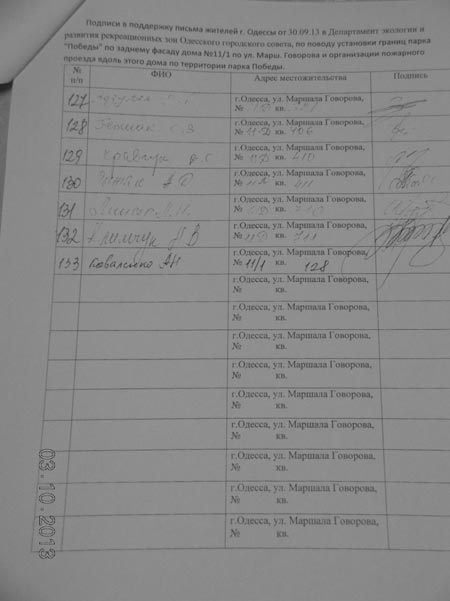 Подписи в поддержку письма жителей г. Одессы от 30.09.13 в Департамент экологии и
развития рекреационных зон Одесского городского совета, по поводу установки границ парка
"Победы" по заднему фасаду дома №11/1 по ул. Марш. Говорова и организации пожарного
проезда вдоль этого дома по территории парка Победы.
№ п/п ФИО Адрес местожительства Подпись
127 г.Одесса, ул. Маршала Говорова,
№ кв.
128 С.З г.Одесса, ул. Маршала Говорова,
№ кв. 106
129 г.Одесса, ул. Маршала Говорова,
№ кв. 410
130 г.Одесса, ул. Маршала Говорова,
№ кв. 411
131 г.Одесса, ул. Маршала Говорова,
№ кв.
132 г.Одесса, ул. Маршала Говорова,
№ кв.
133 Коваленко АН г.Одесса, ул. Маршала Говорова,
№ 11/1 кв. 128
г.Одесса, ул. Маршала Говорова,
№ кв.
г.Одесса, ул. Маршала Говорова,
№ кв.
г.Одесса, ул. Маршала Говорова,
№ кв.
г.Одесса, ул. Маршала Говорова,
№ кв.
г.Одесса, ул. Маршала Говорова,
№ кв.
г.Одесса, ул. Маршала Говорова,
№ кв.
г.Одесса, ул. Маршала Говорова,
№ кв.
г.Одесса, ул. Маршала Говорова,
№ кв.
г.Одесса, ул. Маршала Говорова,
№ кв.
03.10.2013